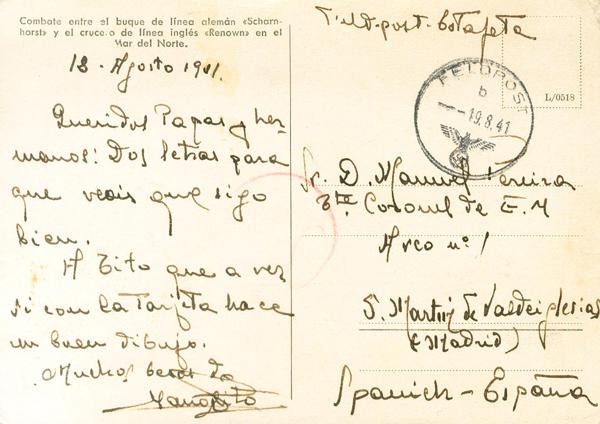 Combate entre el buque de línea alemán «Scharn-
horst» y el crucero de línea inglés «Renown» en el
Mar del Norte.
18 - Agosto 1941.
Queridos Papas y her-
manos: Dos letras para
que veais que sigo
bien.
A Tito que a ver
si con la tarjeta hace
un buen dibujo.
Muchos besos de
Manolito
Feldpost-Estafeta
FELDPOST
b
19.8.41
L/0518
Sr. D. Manuel Pereira
Tte. Coronel de E. M
Arco nº 1
S. Martin de Valdeiglesias
(Madrid)
Spanien - España